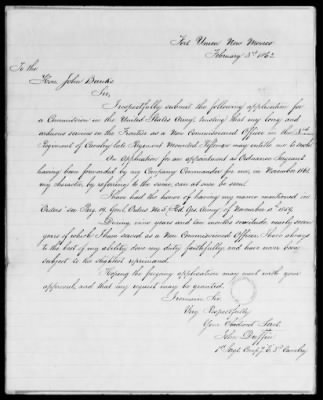 Fort Union New Mexico
February 3d 1862
To the
Hon. John Banks
Sir,
I respectfully submit the following application for
a Commission in the United States Army; trusting that my long and
arduous services on the Frontier as a Non Commissioned Officer in the 3d
Regiment of Cavalry late Regiment Mounted Riflemen may entitle me to
An Application for an appointment as Ordnance Sergeant
having been forwarded by my Company Commander for me, in November 1861
my character, by referring to the same, can at once be seen.
I have had the honor of having my name mentioned in
Orders "see Par. 19, Genl. Orders No. 5, Hd. Qrs. Army of November 10th 1859.
During nine years and two months service nearly seven
years of which I have served as a Non Commissioned Officer, I have always
to the best of my ability done my duty faithfully, and have never been
subject to the slightest reprimand.
Hoping the foregoing application may meet with your
approval, and that my request may be granted.
I remain Sir
Very Respectfully
Your Obedient Servt.
John Duffin
1st Sergt. Compy. E. 3d Cavalry